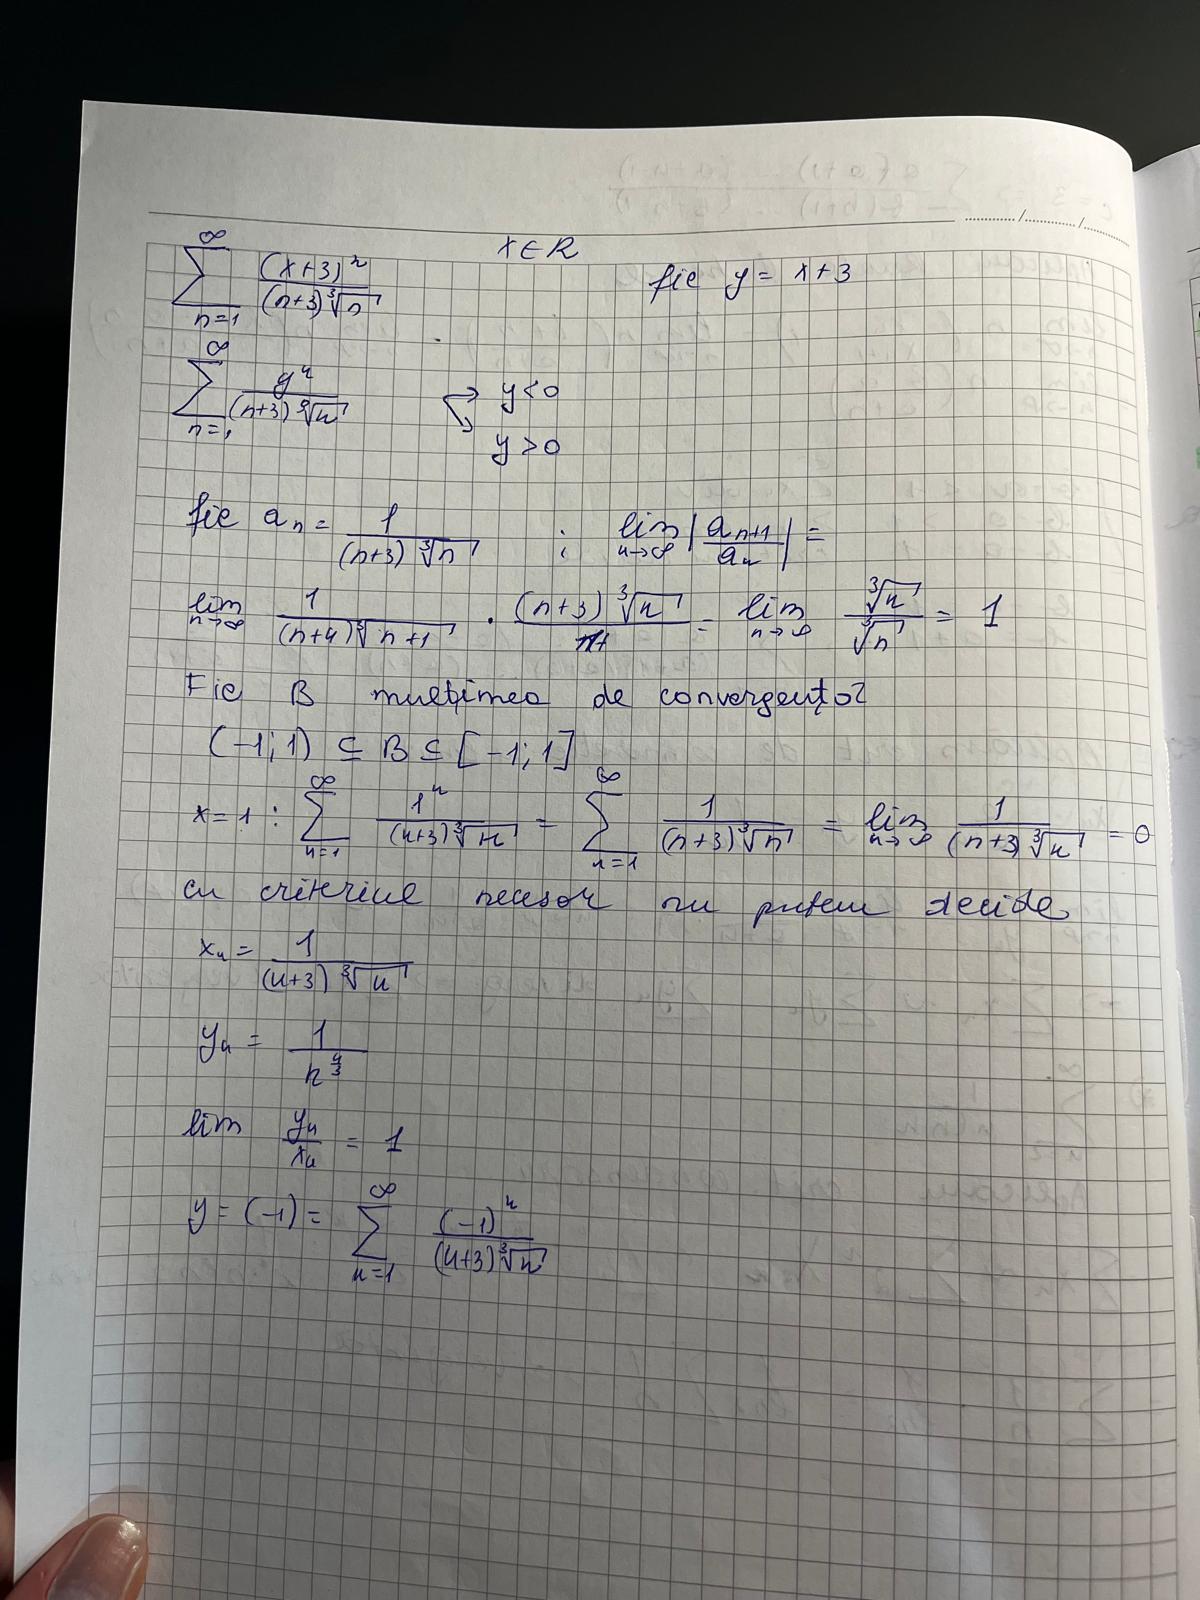 x ∈ R
∑_{n=1}^{∞} (x+3)^n / ((n+3) ∛n)   fie y = x+3
∑_{n=1}^{∞} y^n / ((n+3) ∛n)   y < 0
y > 0
fie a_n = 1 / ((n+3) ∛n) ; lim_{n→∞} |a_{n+1} / a_n| =
lim_{n→∞} 1 / ((n+4) ∛(n+1)) · (n+3) ∛n / 1 = lim_{n→∞} ∛n / ∛n = 1
Fie B mulțimea de convergență
(-1; 1) ⊆ B ⊆ [-1; 1]
x = 1 : ∑_{n=1}^{∞} 1^n / ((n+3) ∛n) = ∑_{n=1}^{∞} 1 / ((n+3) ∛n) = lim_{n→∞} 1 / ((n+3) ∛n) = 0
cu criteriul necesar nu putem decide
x_n = 1 / ((n+3) ∛n)
y_n = 1 / n^{4/3}
lim y_n / x_n = 1
y = (-1) = ∑_{n=1}^{∞} (-1)^n / ((n+3) ∛n)